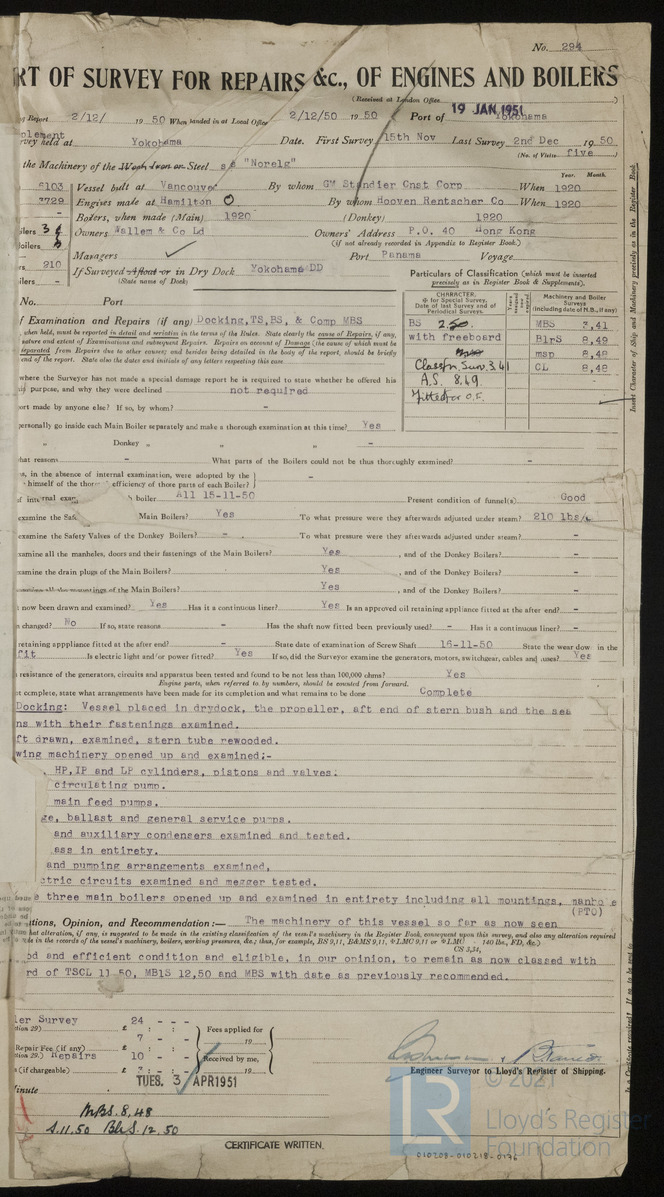 No. 294
RT OF SURVEY FOR REPAIRS &c., OF ENGINES AND BOILERS
(Received at London Office 19 JAN 1951)
Report 2/12/ 1950 When handed in at Local Office 2/12/50 1950 Port of Yokohama
held at Yokohama Date. First Survey 15th Nov Last Survey 2nd Dec 1950
(No. of Visits five)
the Machinery of the Wood, Iron or Steel "Norelg"
Year. Month.
5103 Vessel built at Vancouver By whom GM Standier Cnst Corp When 1920
3729 Engines made at Hamilton O By whom Hooven Rentscher Co When 1920
- Boilers, when made (Main) 1920 (Donkey) 1920
Owners Wallem & Co Ld Owners' Address P.O. 40 Hong Kong
(if not already recorded in Appendix to Register Book.)
Managers Port Panama Voyage
210 If Surveyed Afloat or in Dry Dock Yokohama DD
(State name of Dock)
Particulars of Classification (which must be inserted
precisely as in Register Book & Supplements).
No. Port
CHARACTER.
for Special Survey.
Date of last Survey and of
Periodical Surveys.
Machinery and Boiler
Surveys
(including date of N.B., if any)
BS 2.50 MBS 3,41
with freeboard BlrS 8,49
msp 8,48
Classfn Surv. 3.41 CL 8,48
A.S. 8.49
Fitted for O.F.
f Examination and Repairs (if any) Docking,TS,BS, & Comp MBS
when held, must be reported in detail and verbatim in the terms of the Rules. State clearly the cause of Repairs, if any,
nature and extent of Examinations and subsequent Repairs. Repairs on account of Damage (the cause of which must be
separated from Repairs due to other causes; and besides being detailed in the body of the report, should be briefly
end of the report. State also the dates and initials of any letters respecting this case
where the Surveyor has not made a special damage report he is required to state whether he offered his
purpose, and why they were declined not required
ort made by anyone else? If so, by whom? -
personally go inside each Main Boiler separately and make a thorough examination at this time? Yes
" Donkey " " " -
hat reasons - What parts of the Boilers could not be thus thoroughly examined? -
s, in the absence of internal examination, were adopted by the
himself of the thor efficiency of those parts of each Boiler? -
of internal exam boiler All 15-11-50 Present condition of funnel(s) Good
xamine the Safe Main Boilers? Yes To what pressure were they afterwards adjusted under steam? 210 lbs/
xamine the Safety Valves of the Donkey Boilers? - To what pressure were they afterwards adjusted under steam? -
xamine all the manholes, doors and their fastenings of the Main Boilers? Yes , and of the Donkey Boilers? -
xamine the drain plugs of the Main Boilers? Yes , and of the Donkey Boilers? -
all the mountings of the Main Boilers? Yes , and of the Donkey Boilers? -
now been drawn and examined? Yes Has it a continuous liner? Yes Is an approved oil retaining appliance fitted at the after end? -
n changed? No If so, state reasons - Has the shaft now fitted been previously used? - Has it a continuous liner? -
retaining appliance fitted at the after end? - State date of examination of Screw Shaft 16-11-50 State the wear down in the
fit Is electric light and/or power fitted? Yes If so, did the Surveyor examine the generators, motors, switchgear, cables and fuses? Yes
resistance of the generators, circuits and apparatus been tested and found to be not less than 100,000 ohms? Yes
Engine parts, when referred to by numbers, should be counted from forward.
t complete, state what arrangements have been made for its completion and what remains to be done Complete
Docking: Vessel placed in drydock, the propeller, aft end of stern bush and the sea
ns with their fastenings examined.
ft drawn, examined, stern tube rewooded.
wing machinery opened up and examined:-
HP,IP and LP cylinders, pistons and valves.
circulating pump.
main feed pumps.
ge, ballast and general service pumps.
and auxiliary condensers examined and tested.
ass in entirety.
and pumping arrangements examined,
ctric circuits examined and megger tested.
e three main boilers opened up and examined in entirety including all mountings, manho e
(PTO)
tions, Opinion, and Recommendation:— The machinery of this vessel so far as now seen
hat alteration, if any, is suggested to be made in the existing classification of the vessel's machinery in the Register Book, consequent upon this survey, and also any alteration required
de in the records of the vessel's machinery, boilers, working pressures, &c.; thus, for example, BS 9,11, B&MS 9,11, LMC 9,11 or LMC 140 lbs., FD, &c.)
CS 3,34,
od and efficient condition and eligible, in our opinion, to remain as now classed with
rd of TSCL 11 50, MBlS 12,50 and MBS with date as previously recommended.
ler Survey 24 - - -
£ : :
7 - - Fees applied for
Repair Fee (if any) £ : : 19
Repairs 10 - - Received by me,
(if chargeable) £ : : 19
TUES. 3 APR 1951
Minute
Engineer Surveyor to Lloyd's Register of Shipping.
MBS. 8,48
S.11.50 BlrS. 12.50
CERTIFICATE WRITTEN.
010208-010218-0176
© 2021
LR
Lloyd's Register
Foundation
Insert Character of Ship and Machinery precisely as in the Register Book.
Is a Certificate required? If so, to be sent to